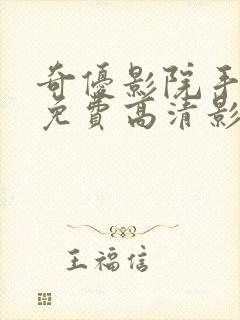 奇優影院手
免費高清影
王福信